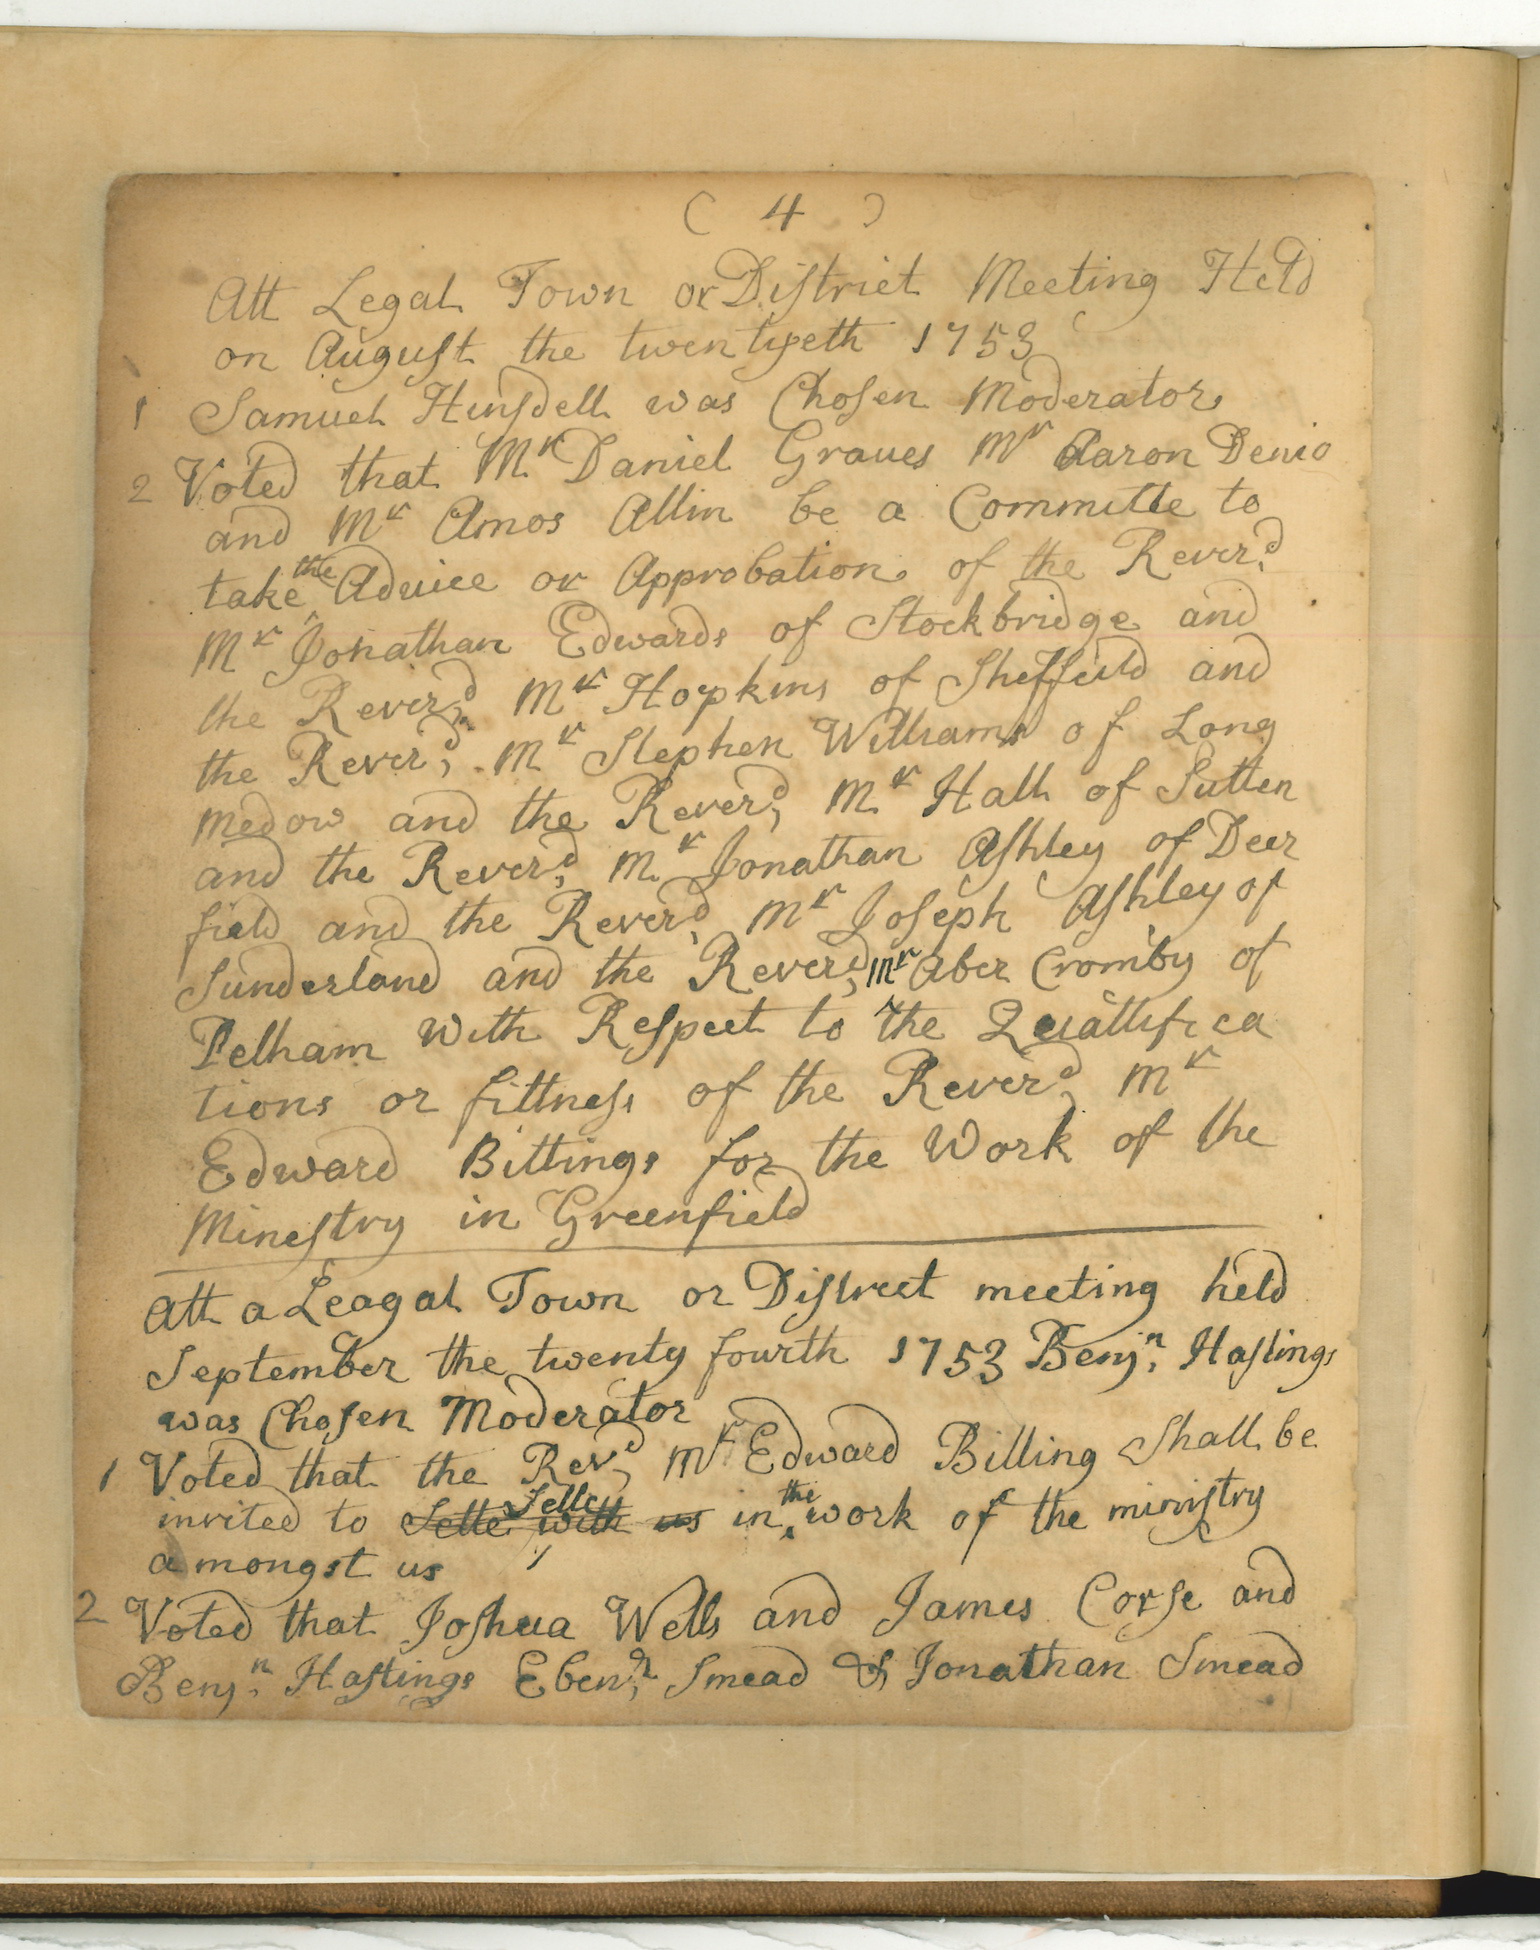 ( 4 )
Att Legal Town or District Meeting Held
on August the twentyeth 1753
1 Samuel Hinsdell was Chosen Moderator
2 Voted that Mr Daniel Graves Mr Aaron Denio
and Mr Amos Allin be a Committe to
take the Advice or Approbation of the Reverd
Mr Jonathan Edwards of Stockbridge and
the Reverd Mr Hopkins of Sheffeild and
the Reverd Mr Stephen Williams of Long
medow and the Reverd Mr Hall of Sutten
and the Reverd Mr Jonathan Ashley of Deer
field and the Reverd Mr Joseph Ashley of
Sunderland and the Reverd Mr Aber Cromby of
Pelham with Respect to the Quallifica
tions or fittness of the Reverd Mr
Edward Billings for the Work of the
Minestry in Greenfield
Att a Leagal Town or District meeting held
September the twenty fourth 1753 Benjn Hastings
was Chosen Moderator
1 Voted that the Revd Mr Edward Billing Shall be
invited to Settle with us Settle in the work of the ministry
amongst us
2 Voted that Joshua Wells and James Corse and
Benjn Hastings Ebenr Smead & Jonathan Smead